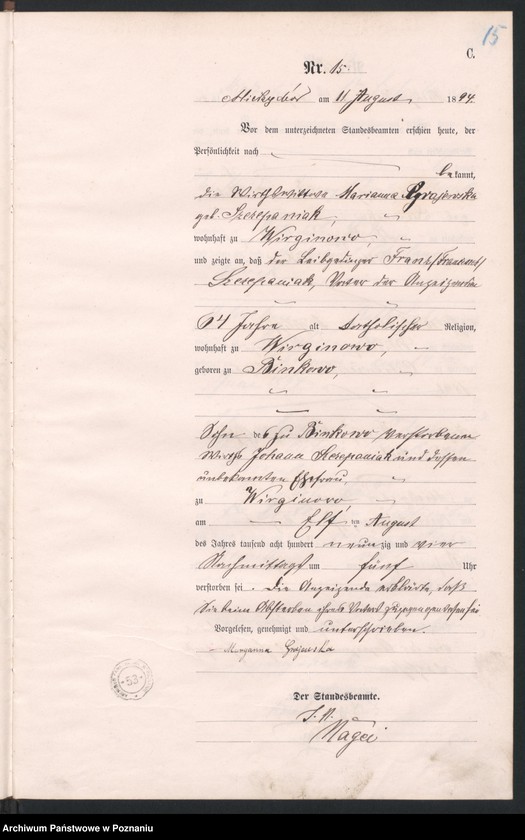 15
C.
Nr. 15.
am 11 August 1894.
Vor dem unterzeichneten Standesbeamten erschien heute, der
Persönlichkeit nach
bekannt,
die Wirthswittwe Marianna
geb. Szczepaniak,
wohnhaft zu Wirginowo,
und zeigte an, daß der Leibgedinger Franz
Szczepaniak, Vater der Anzeigenden
Jahre alt katholischer Religion,
wohnhaft zu Wirginowo,
geboren zu Binkowo,
Sohn des zu Binkowo verstorbenen
Wirths Johann Szczepaniak und dessen
unbekannten Ehefrau,
zu Wirginowo
am Elf ten August
des Jahres tausend acht hundert neunzig und vier
Nachmittags um fünf Uhr
verstorben sei. Die Anzeigende erklärte, daß
sie beim Absterben ihres Vaters zugegen gewesen sei
Vorgelesen, genehmigt und unterschrieben.
Maryanna
53
Der Standesbeamte.
Archiwum Państwowe w Poznaniu